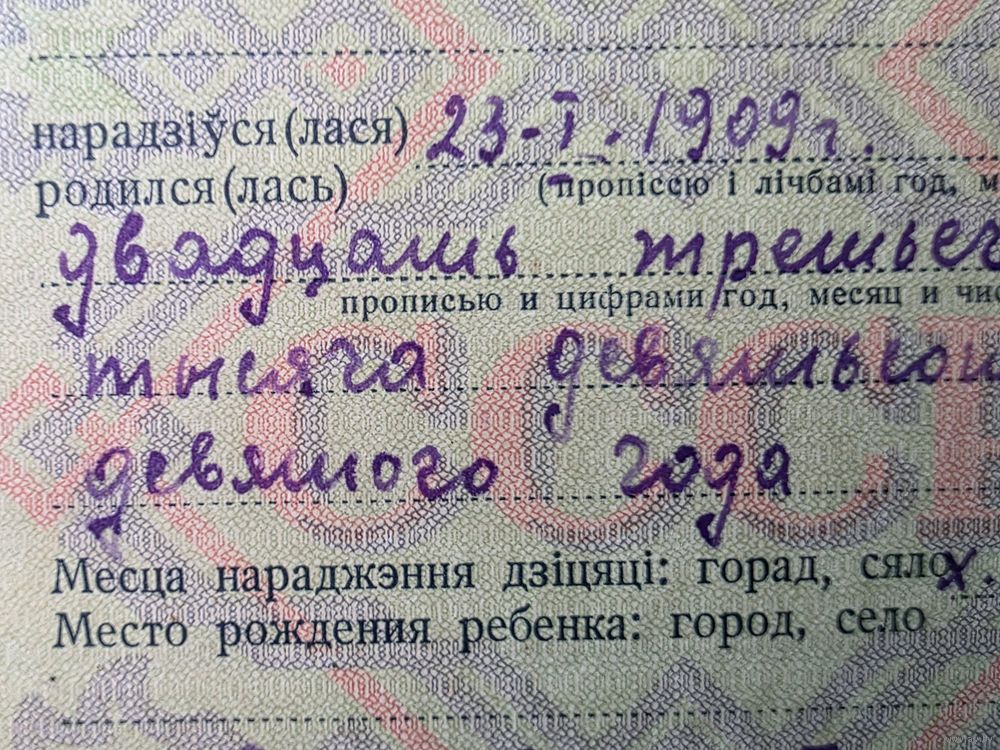 нарадзіўся (лася) 23-I-1909 г.
родился (лась) (прописсю і лічбамі год, м
двадцать третьег
прописью и цифрами год, месяц и чис
тысяча девятьсот
девятого года
Месца нараджэння дзіцяці: горад, сяло х.
Место рождения ребенка: город, село
СССР